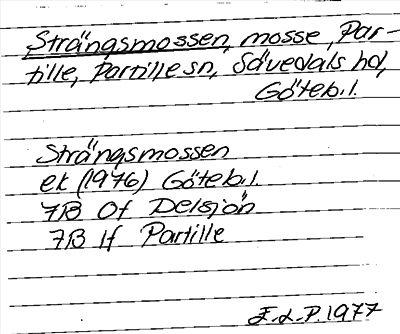 Strängsmossen, mosse, Par-
tille, Partille sn, Sävedals hd,
Göteb.l.
Strängsmossen
ek (1976) Göteb.l.
7B 0f Delsjön
7B 1f Partille
E.L.P. 1977